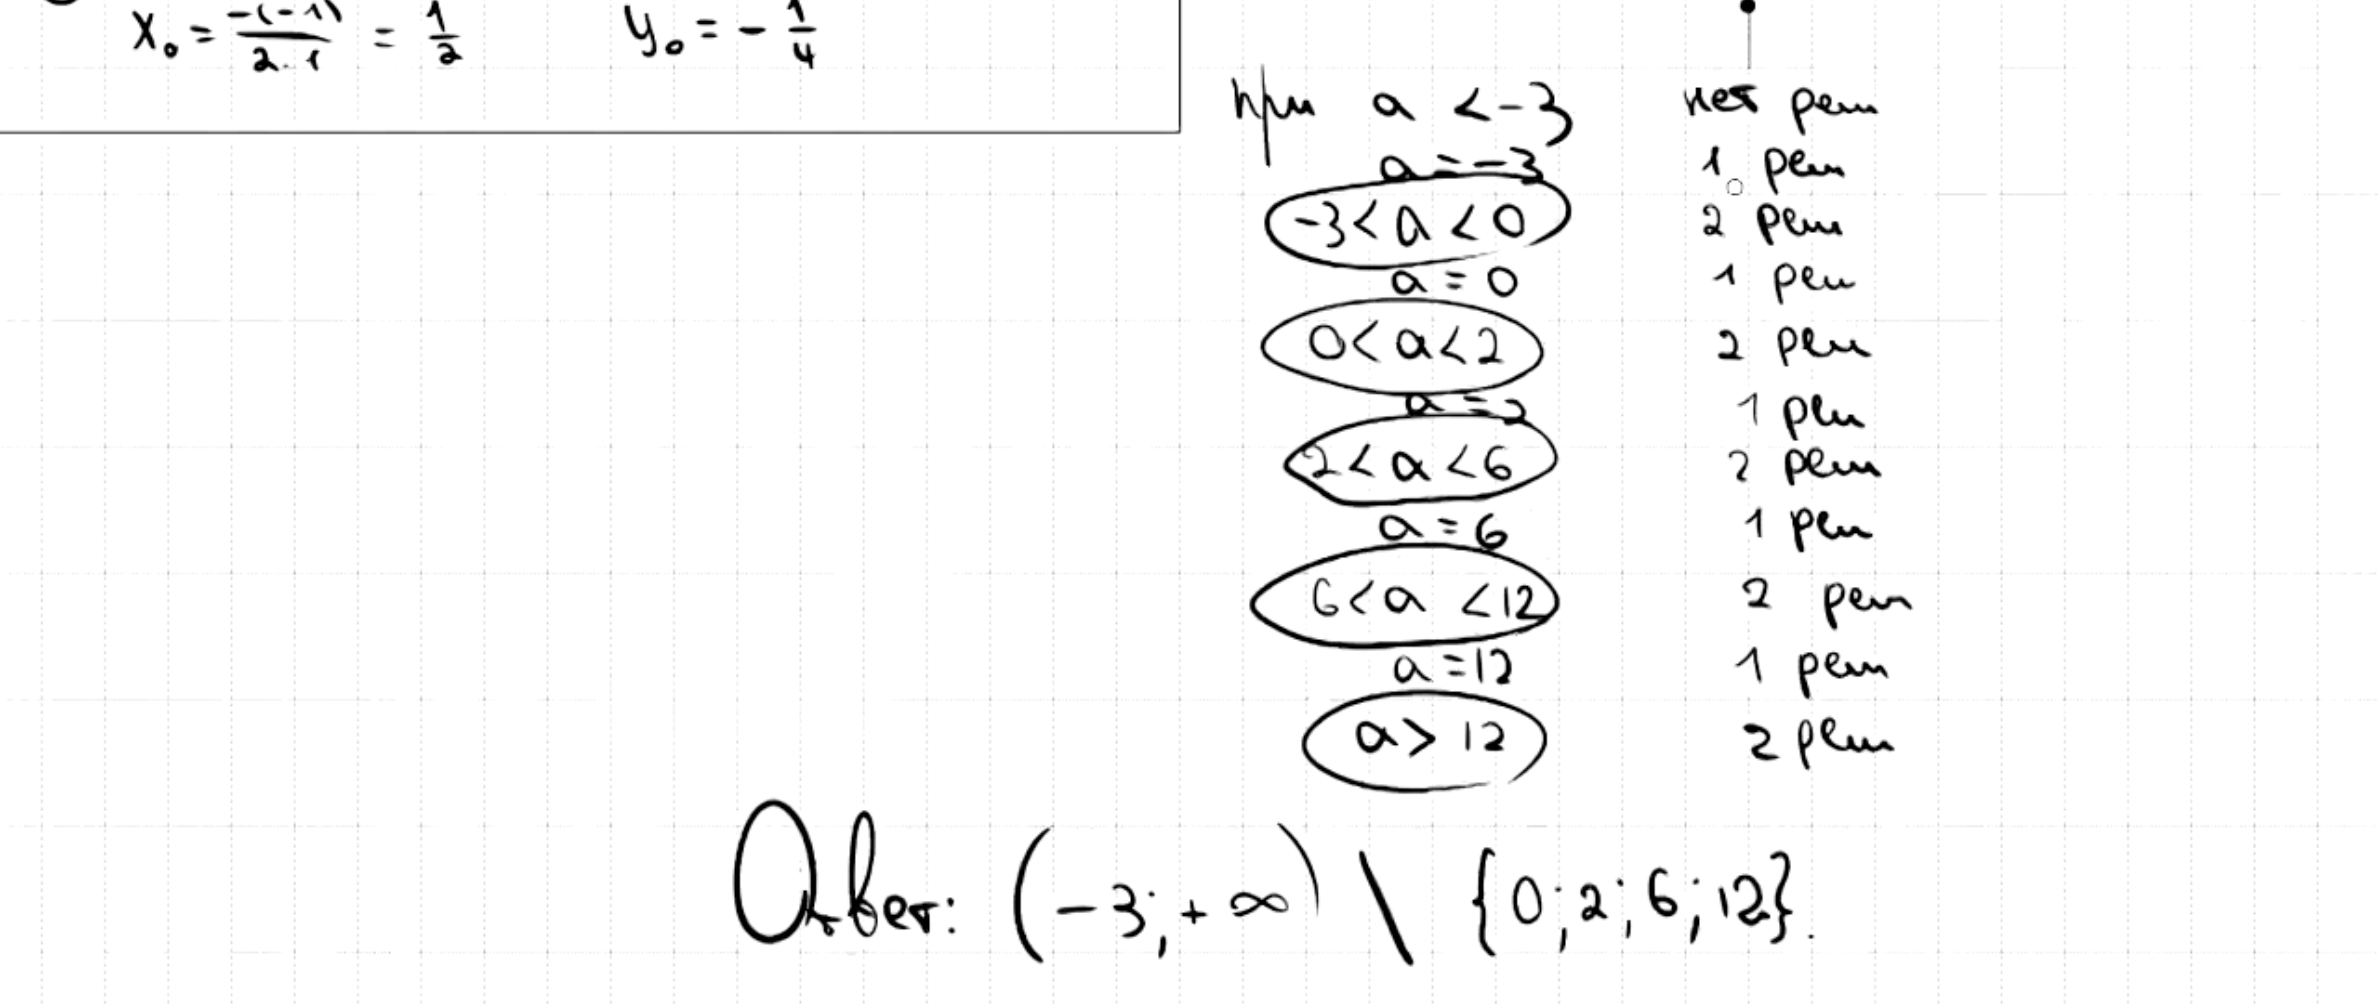 x₀ = -(-1)/2·1 = 1/2 y₀ = -1/4
при a < -3 нет реш
a = -3 1 реш
-3 < a < 0 2 реш
a = 0 1 реш
0 < a < 2 2 реш
a = 2 1 реш
2 < a < 6 2 реш
a = 6 1 реш
6 < a < 12 2 реш
a = 12 1 реш
a > 12 2 реш
Ответ: (-3; +∞) \ {0; 2; 6; 12}.